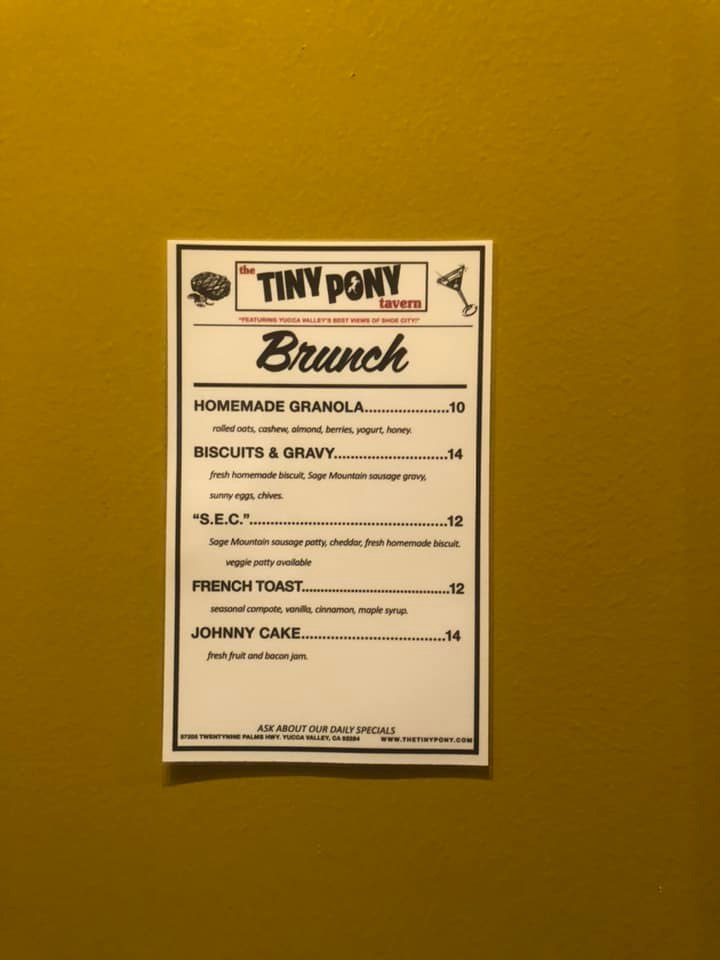 the TINY PONY
tavern
"FEATURING YUCCA VALLEY'S BEST VIEWS OF SHOE CITY!"
Brunch
HOMEMADE GRANOLA....................10
rolled oats, cashew, almond, berries, yogurt, honey.
BISCUITS & GRAVY...........................14
fresh homemade biscuit, Sage Mountain sausage gravy,
sunny eggs, chives.
"S.E.C."...............................................12
Sage Mountain sausage patty, cheddar, fresh homemade biscuit.
veggie patty available
FRENCH TOAST...................................12
seasonal compote, vanilla, cinnamon, maple syrup.
JOHNNY CAKE..................................14
fresh fruit and bacon jam.
ASK ABOUT OUR DAILY SPECIALS
57205 TWENTYNINE PALMS HWY. YUCCA VALLEY, CA 92284 WWW.THETINYPONY.COM